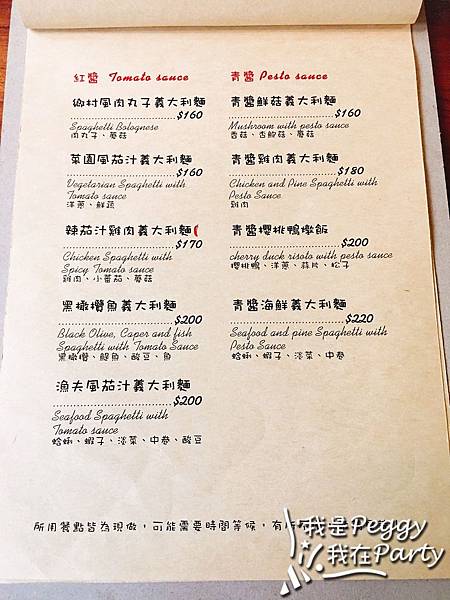 紅醬 Tomato sauce
鄉村風肉丸子義大利麵
$160
Spaghetti Bolognese
肉丸子、蘑菇
菜園風茄汁義大利麵
$160
Vegetarian Spaghetti with
Tomato sauce
洋蔥、鮮蔬
辣茄汁雞肉義大利麵
$170
Chicken Spaghetti with
Spicy Tomato sauce
雞肉、小蕃茄、蘑菇
黑橄欖魚義大利麵
$200
Black Olive, Caper and fish
Spaghetti with Tomato Sauce
黑橄欖、鯷魚、酸豆、魚
漁夫風茄汁義大利麵
$200
Seafood Spaghetti with
Tomato sauce
蛤蜊、蝦子、淡菜、中卷、酸豆
青醬 Pesto sauce
青醬鮮菇義大利麵
$160
Mushroom with pesto sauce
香菇、杏鮑菇、蘑菇
青醬雞肉義大利麵
$180
Chicken and Pine Spaghetti with
Pesto Sauce
雞肉
青醬櫻桃鴨燉飯
$200
cherry duck risoto with pesto sauce
櫻桃鴨、洋蔥、蒜片、松子
青醬海鮮義大利麵
$220
Seafood and pine Spaghetti with
Pesto Sauce
蛤蜊、蝦子、淡菜、中卷
所用餐點皆為現做，可能需要時間等候，有所
我是Peggy
我在Party